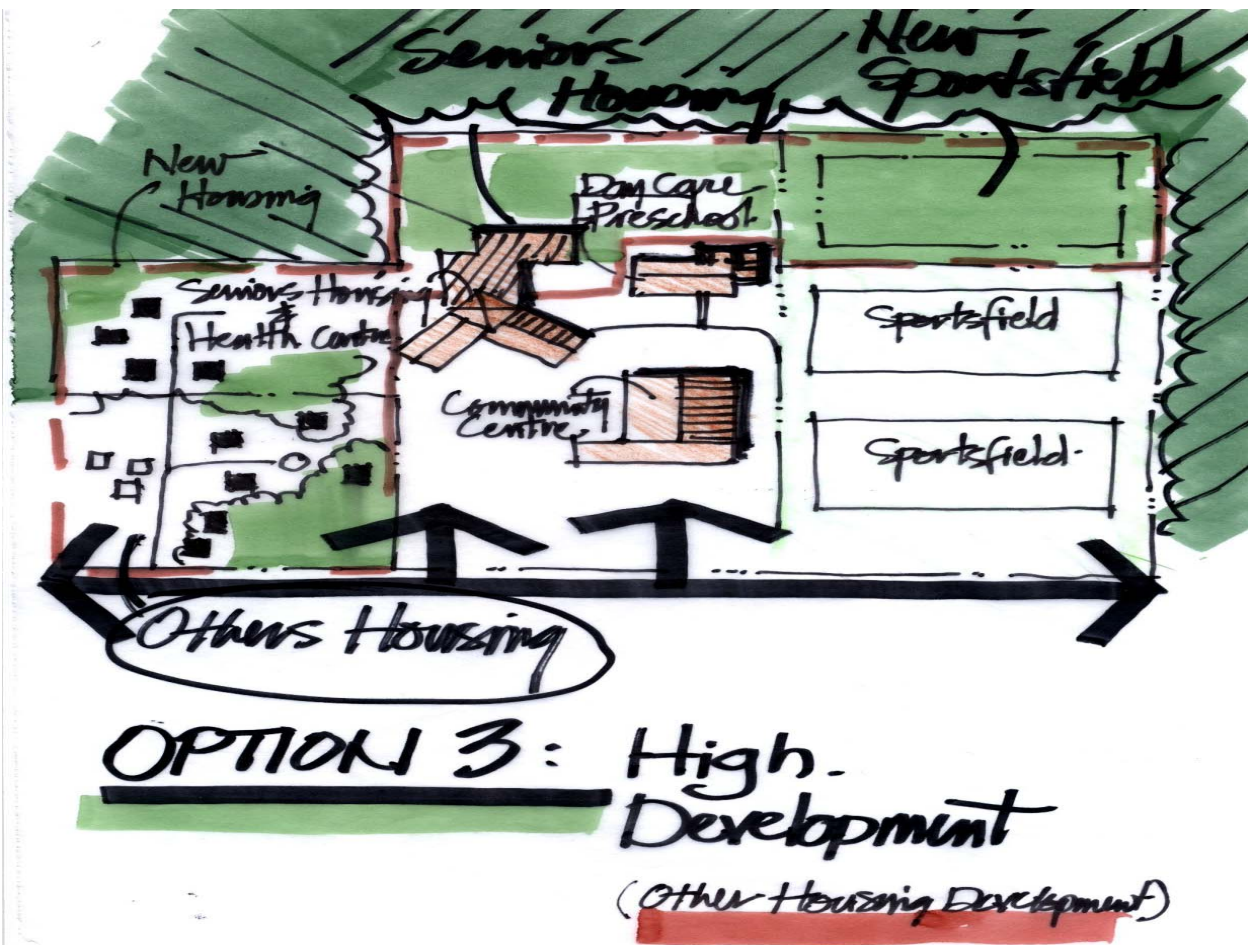 Seniors
Housing
New
Sportsfield
New
Housing
Day Care
Preschool.
Seniors Housing
&
Health Centre
Sportsfield
Community
Centre.
Sportsfield.
Others Housing
OPTION 3: High.
Development
(Other Housing Development)